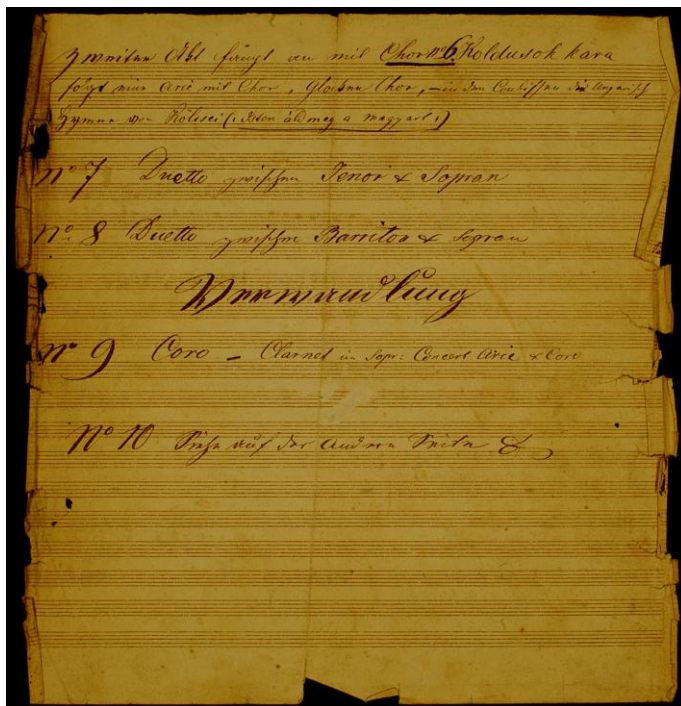 Zweiter Akt fängt an mit Chor No 6. Koldusok kara
folgt eine Arie mit Chor, Glocken Chor, – in den Coulissen die Ungarisch
Hymne von Kölcsei (: Isten áld meg a magyart :)
No 7 Duetto zwischen Tenor & Sopran
No 8 Duetto zwischen Barriton & Sopran
Verwandlung
No 9 Coro – Clarnet in Sopr: Concert Arie & Coro
No 10 Siehe auf der andern Seite